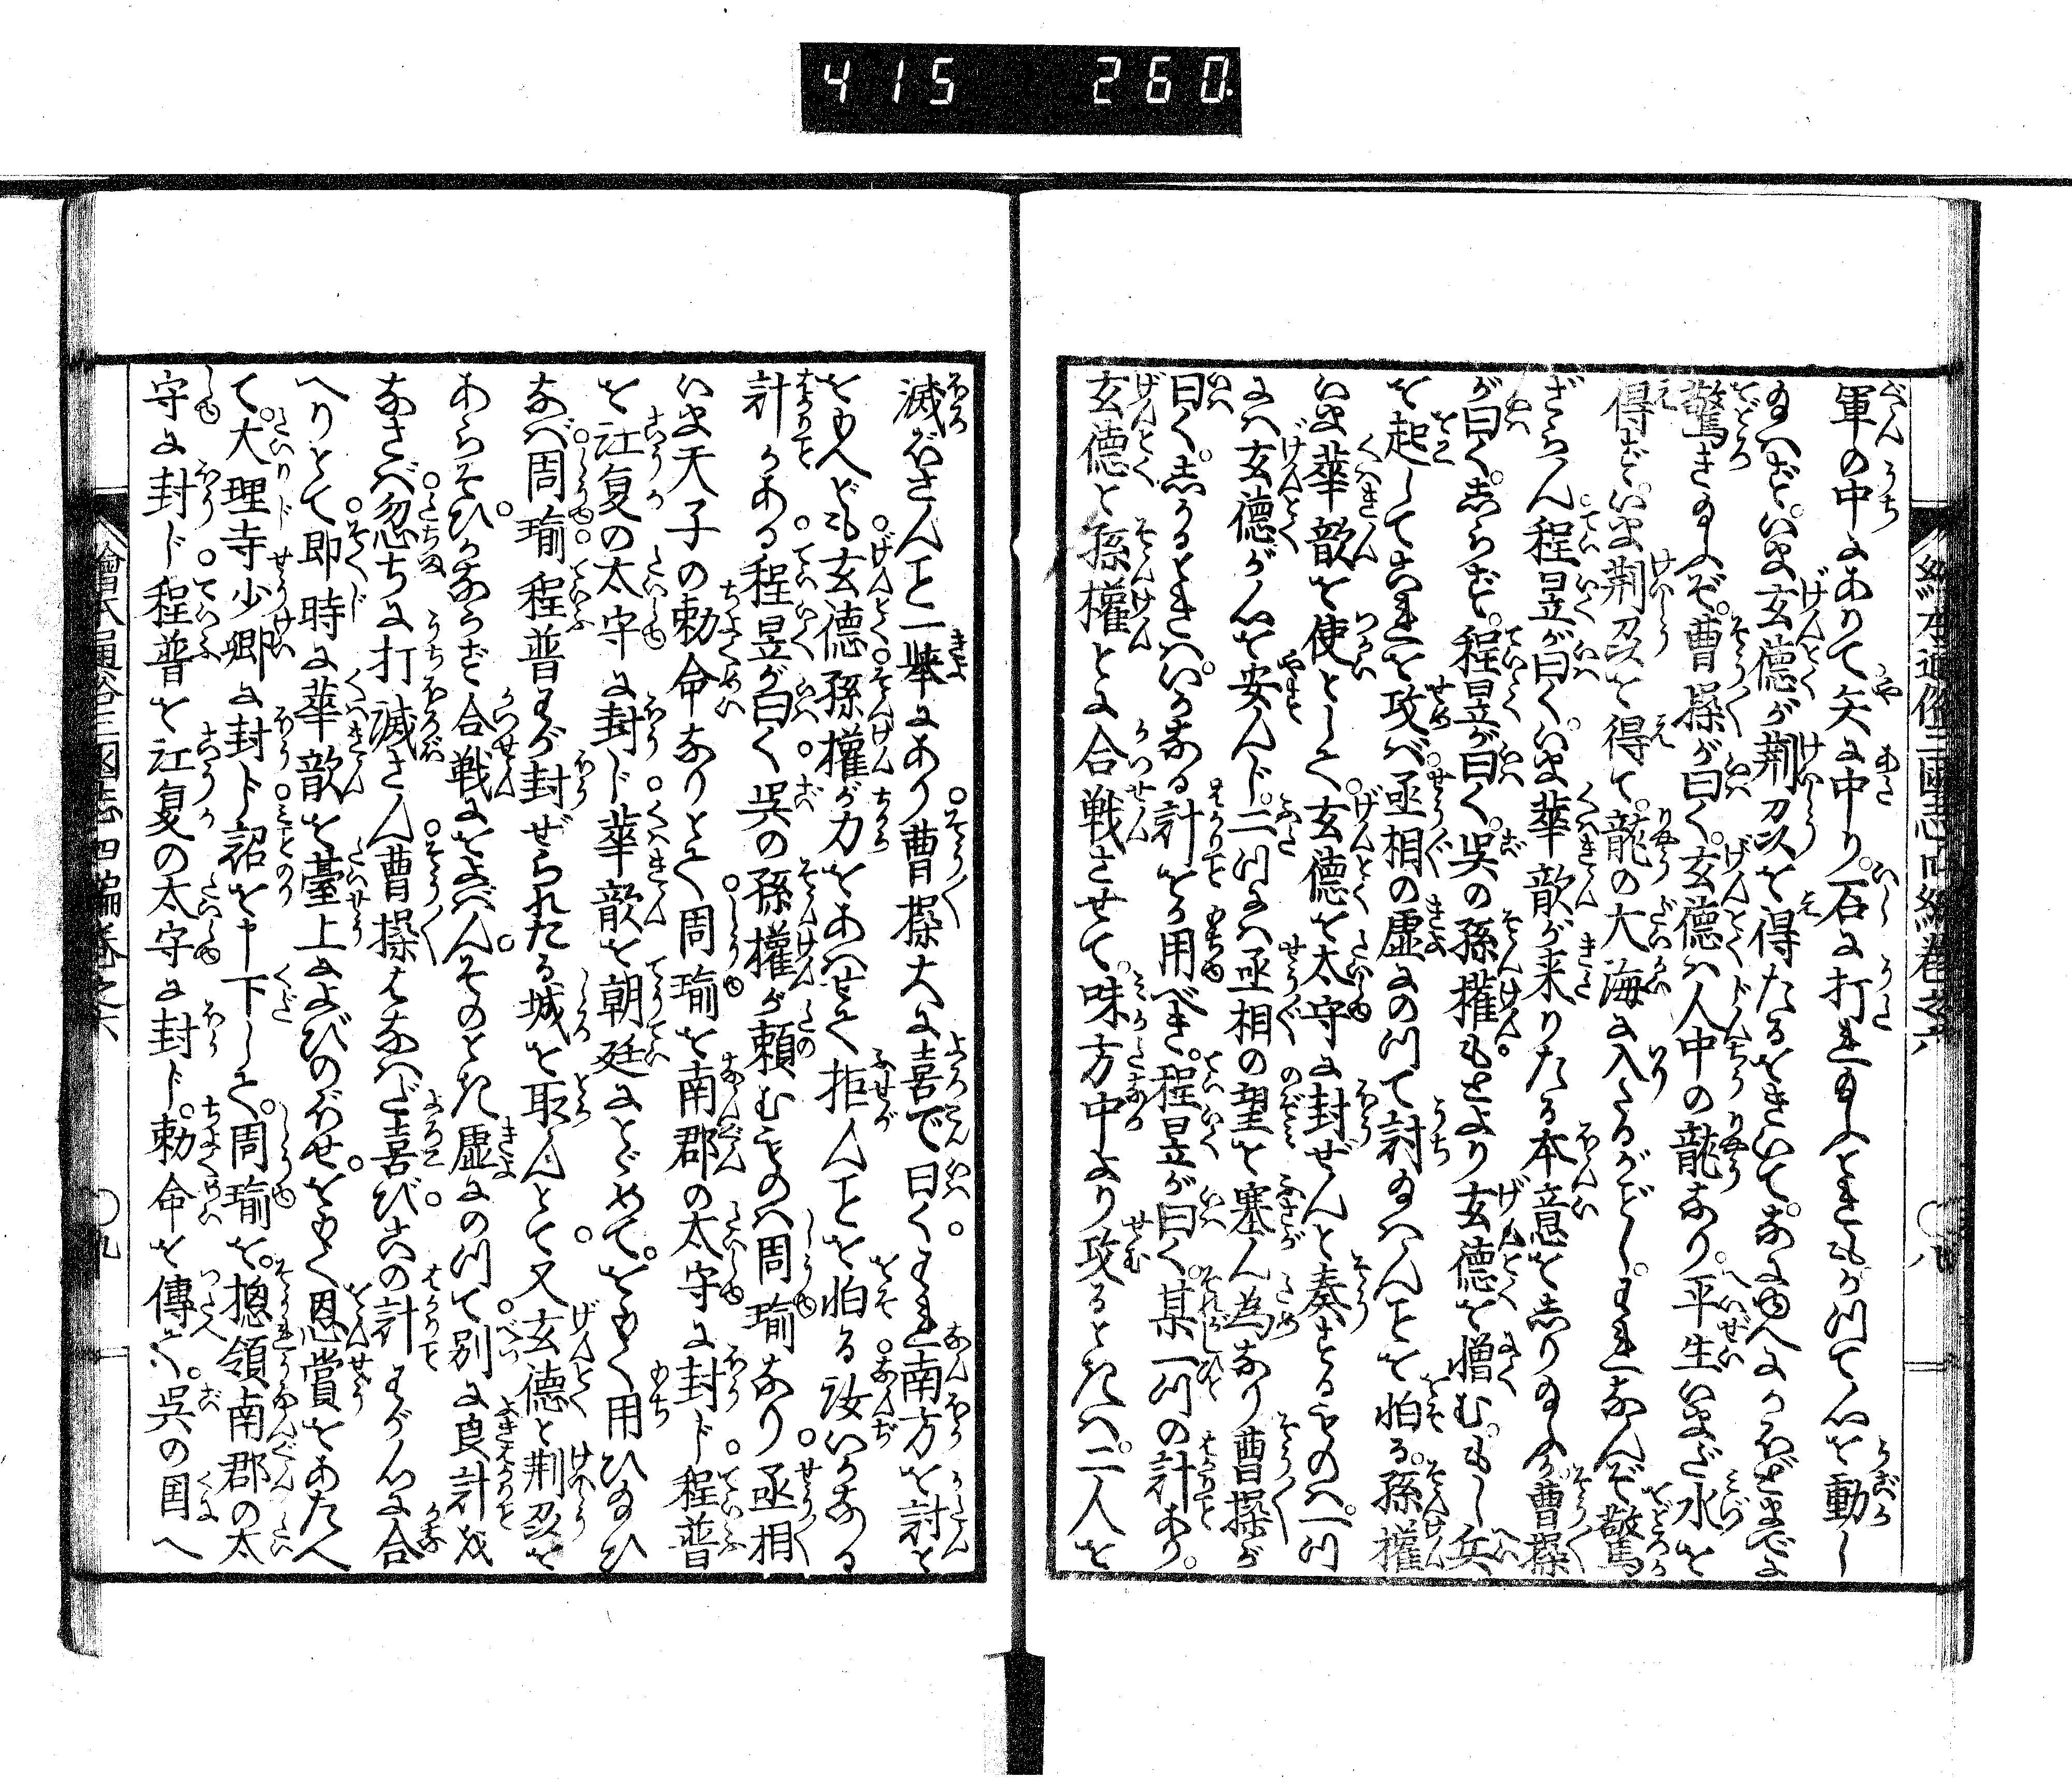 415 260.
繪本通俗三國志四編巻之六
〇八
軍の中にありて矢に中り。石に打れ玉ふときもかつて心を動し
玉はざるに。いま玄德が荊刕を得たるをきいて。なにゆへにかほどまでに
驚き玉ふぞ。曹操が曰く。玄德ハ人中の龍なり。平生いまだ水を
得ず。いま荊刕を得て。龍の大海に入るがごとし。われなんぞ驚
ざらん程昱が曰く。いま華歆が来りたる本意を知り玉ふか曹操
が曰く。しらず。程昱が曰く。呉の孫權もとより玄德を憎む。もし兵
を起してこれを攻べ丞相の虚にのつて討玉はんことを怕る。孫權
いま華歆を使として。玄德を太守に封ぜんと奏するものハ。一つ
にハ玄德が心を安んじ。二つにハ丞相の望を塞ん為なり曹操が
曰く。しかるときハいかなる計をか用べき。程昱が曰く。某一つの計あり。
玄德と孫權とに合戦させて。味方中より攻るときハ。二人を
滅ぼさんこと一擧にあり曹操大に喜で曰くわれ南方を討を
をもへども玄德孫權が力をあはせて拒んことを怕る汝いかなる
計かある程昱が曰く呉の孫權が頼むものハ周瑜なり丞相
いま天子の勅命なりとて周瑜を南郡の太守に封じ程普
を江夏の太守に封じ華歆を朝廷にとゞめて。をもく用ひ玉ひ
なべ周瑜程普わが封ぜられたる城を取んとて又玄德と荊刕を
あらそひかならず合戦にをよべんそのとき虚にのつて別に良計を
なさべ忽ちに打滅さん曹操きゝてなはだ喜びこの計わが心に合
へりとて即時に華歆を臺上によびのぼせ。をもく恩賞をあたへ
て。大理寺少卿に封ド詔を申下して。周瑜を。摠領南郡の太
守に封ド程普を江夏の太守に封ド。勅命を傳て。呉の国へ
繪本通俗三國志四編巻之六
〇九